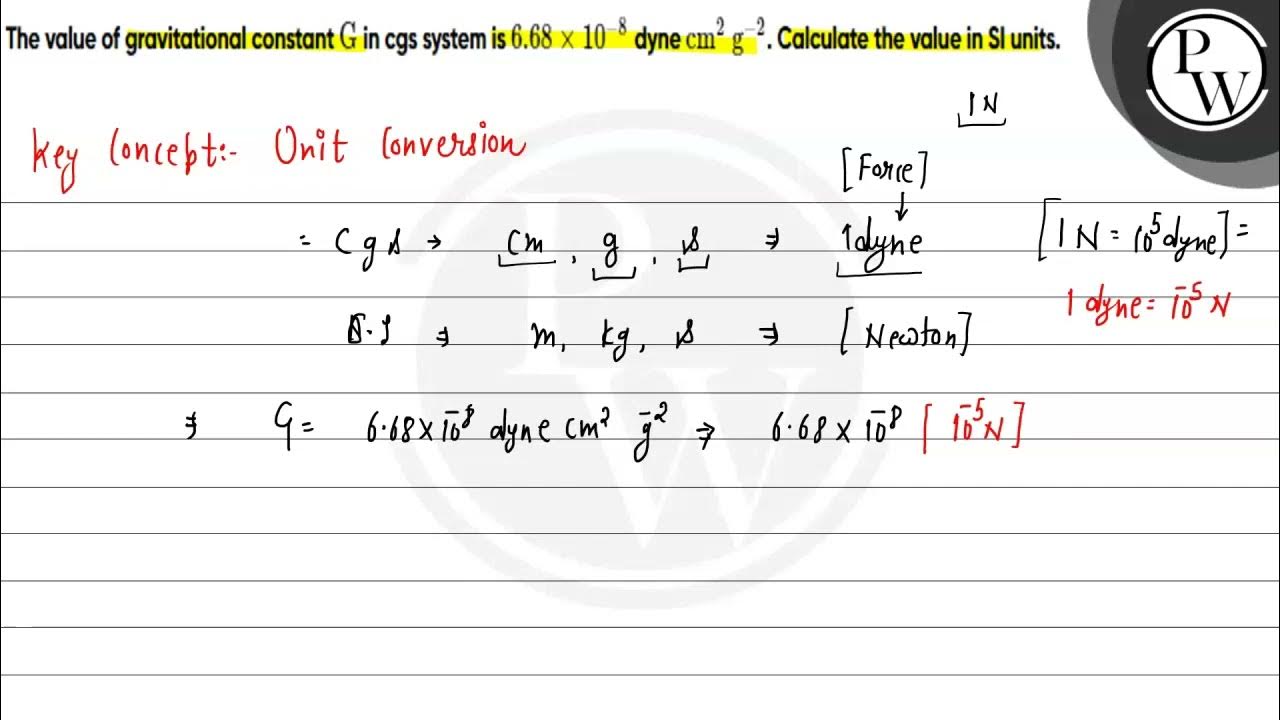 The value of gravitational constant G in cgs system is 6.68 × 10⁻⁸ dyne cm² g⁻². Calculate the value in SI units.
P
W
1N
Key Concept:- Unit Conversion
[Force]
↓
= C g s → cm, g, s ⇒ 1 dyne [1 N = 10⁵ dyne] =
1 dyne = 10⁻⁵ N
S.I ⇒ m, kg, s ⇒ [Newton]
⇒ G = 6.68 × 10⁻⁸ dyne cm² g⁻² ⇒ 6.68 × 10⁻⁸ [10⁻⁵ N]
P
W